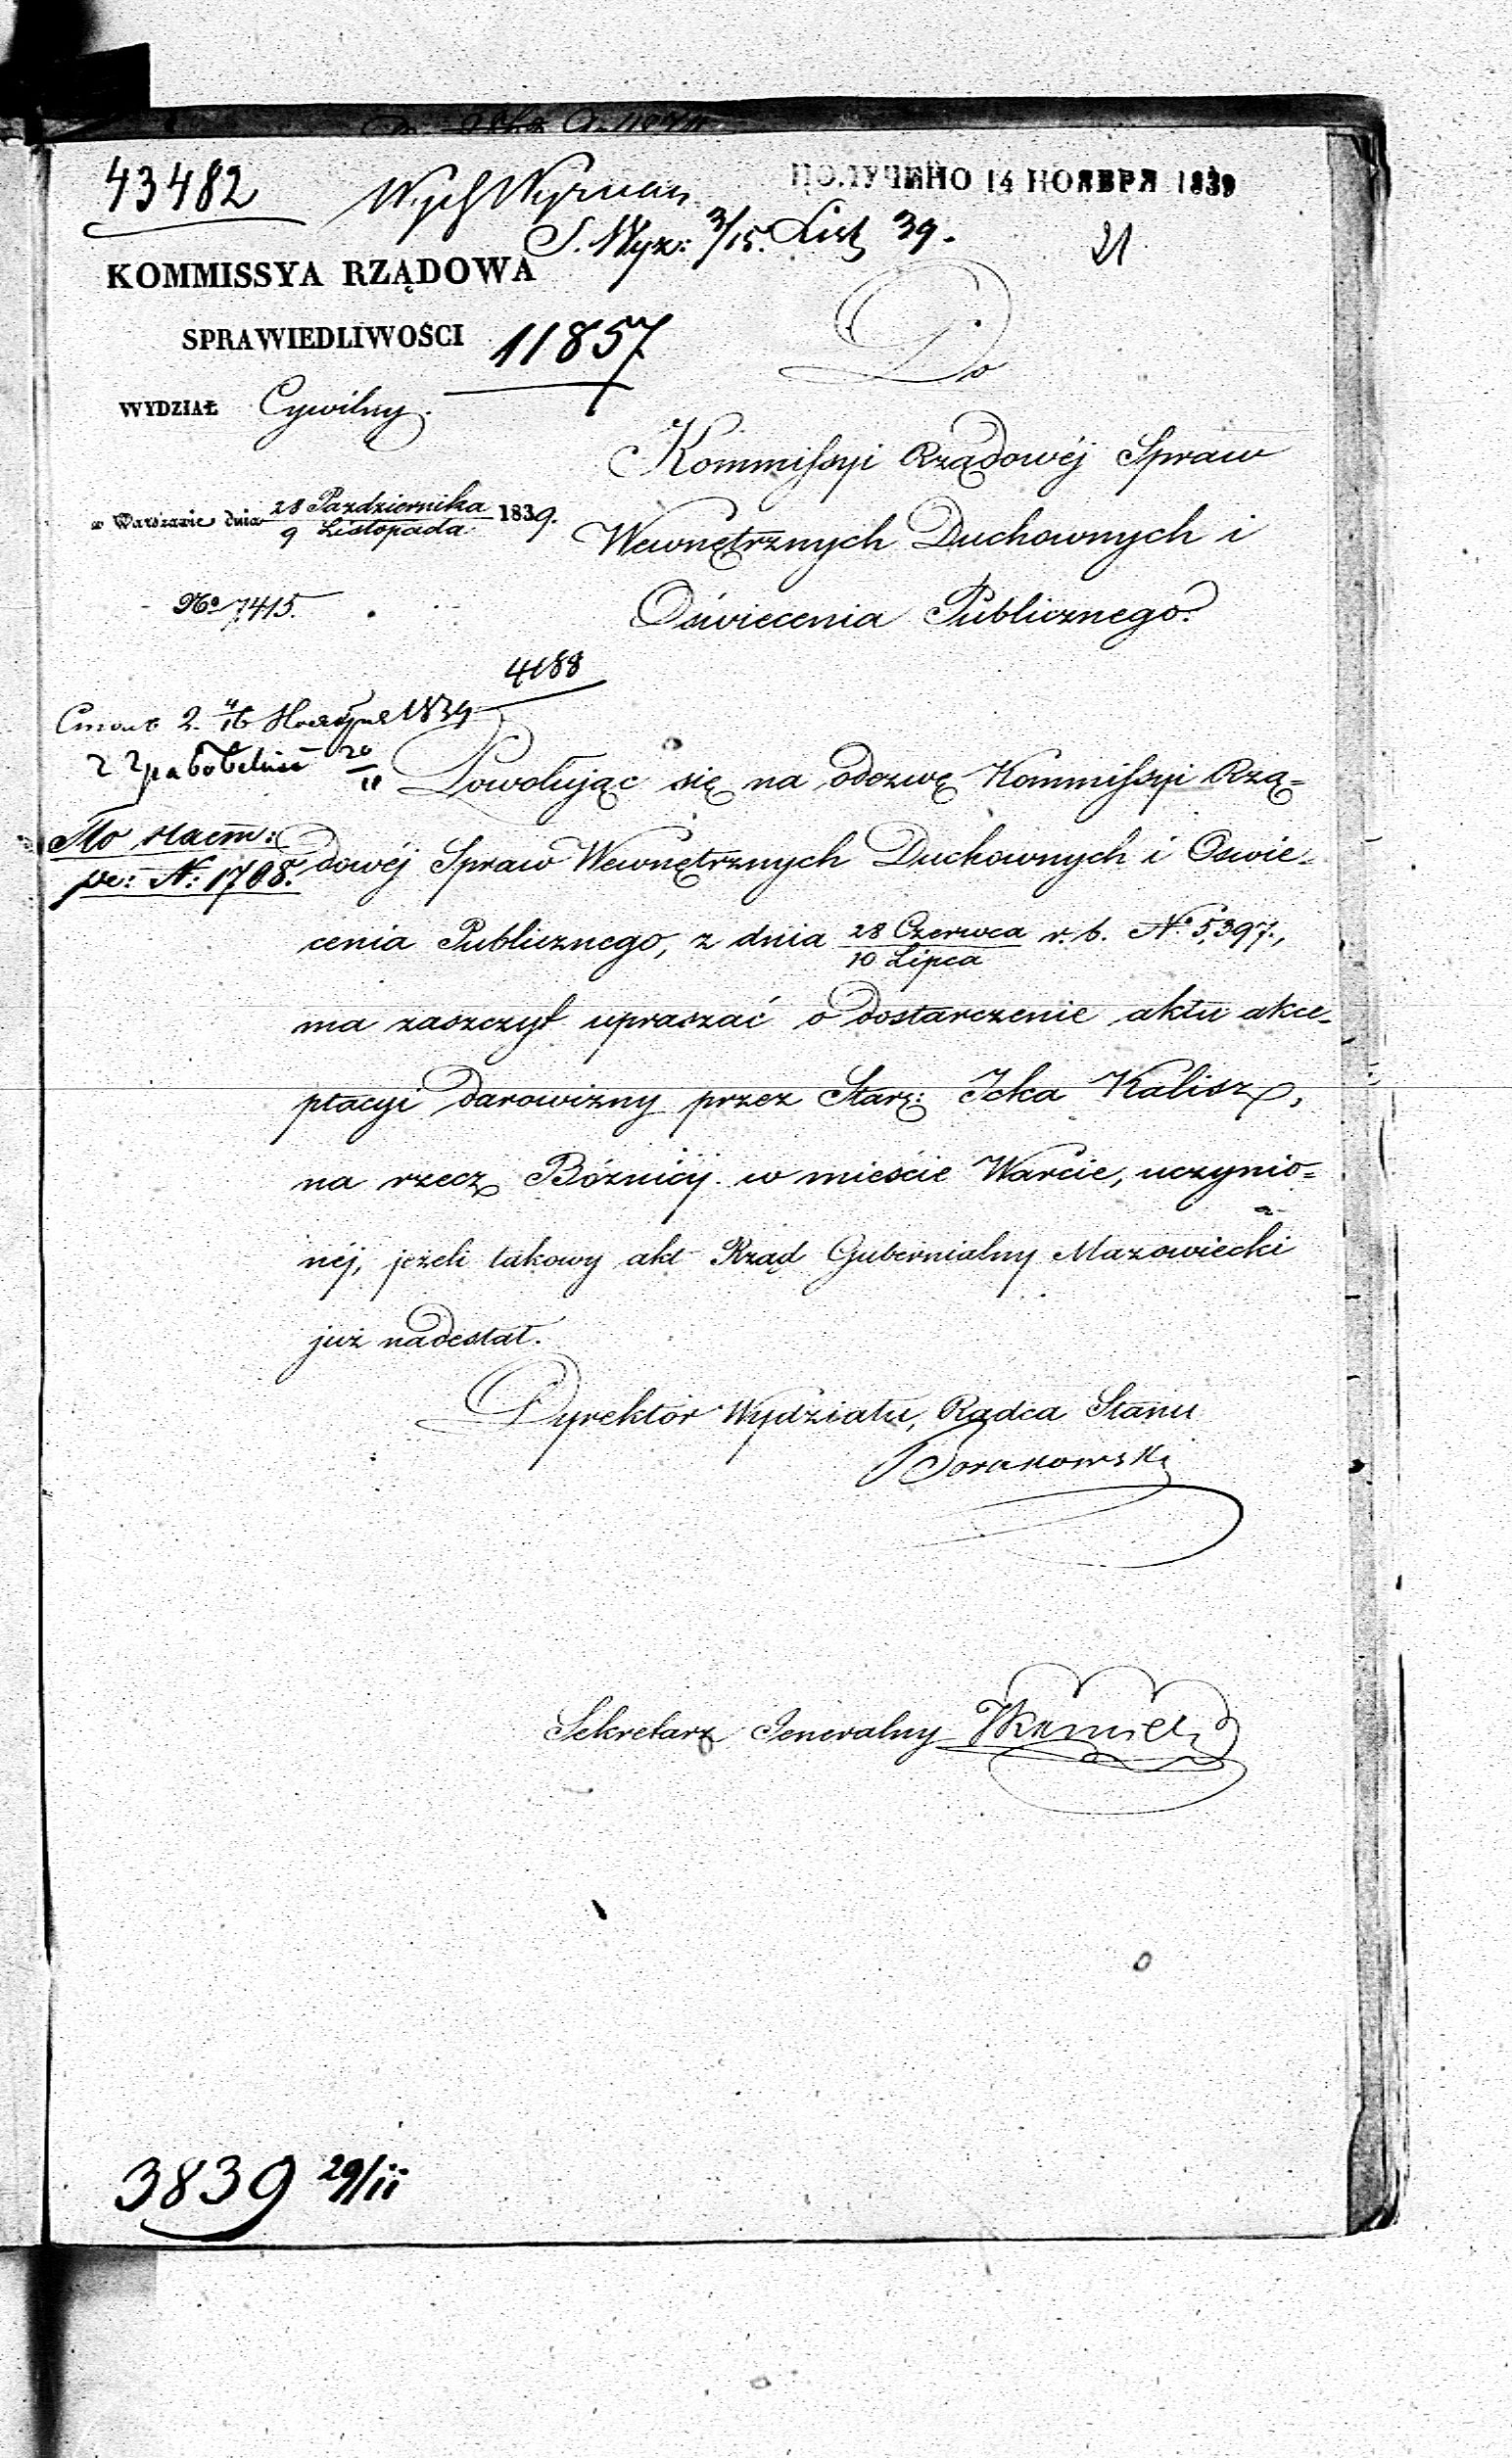 43482
Wydz Wyznań
ПОЛУЧЕНО 14 НОЯБРЯ 1839
S. Wyz: 3/15. List 39.
21
KOMMISSYA RZĄDOWA
SPRAWIEDLIWOŚCI
11857
WYDZIAŁ Cywilny.
w Warszawie dnia 28 Pazdziernika / 9 Listopada 1839.
No 7415.
Do
Kommissyi Rządowéj Spraw
Wewnętrznych Duchownych i
Oświecenia Publicznego.
4188
1839
20/11
По настм:
ре: N: 1708.
Powołując się na odezwę Kommissyi Rzą=
dowéj Spraw Wewnętrznych Duchownych i Oswie=
cenia Publicznego, z dnia 28 Czerwca / 10 Lipca r. b. No 5,397.,
ma zaszczyt upraszać o dostarczenie aktu akce=
ptacyi darowizny przez Starz: Icka Kalisz,
na rzecz Bóżnicy w mieście Warcie, uczynio=
néj, jeżeli takowy akt Rząd Gubernialny Mazowiecki
już nadesłał.
Dyrektor Wydziału, Radca Stanu
Sekretarz Jeneralny
3839 29/11